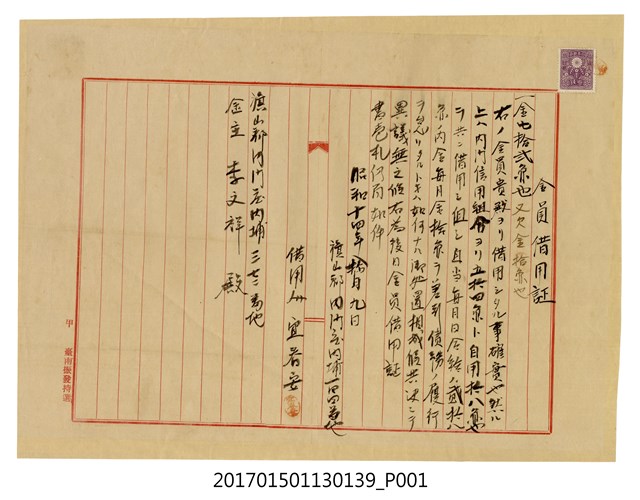 金員借用証
一金七拾弐円也 又欠金拾円也
右ノ金員貴殿ヨリ借用シタル事確実也然ル
上ハ内門信用組合ヨリ五拾四円ト自用拾八円也
ヲ共ニ借用シ但シ自当毎月日金給ハ弐拾八
円ノ内金毎月金拾円ヲ差引債務ノ履行
ヲ怠リタルトキハ如何ナル御処置相成候共決シテ
異議無之候右為後日金員借用証
書壱札仍而如件
昭和十四年拾月九日
旗山郡内門庄内埔一四四番地
借用人
旗山郡内門庄内埔三七二番地
金主 李文祥 殿
甲
臺南振發持製
201701501130139_P001